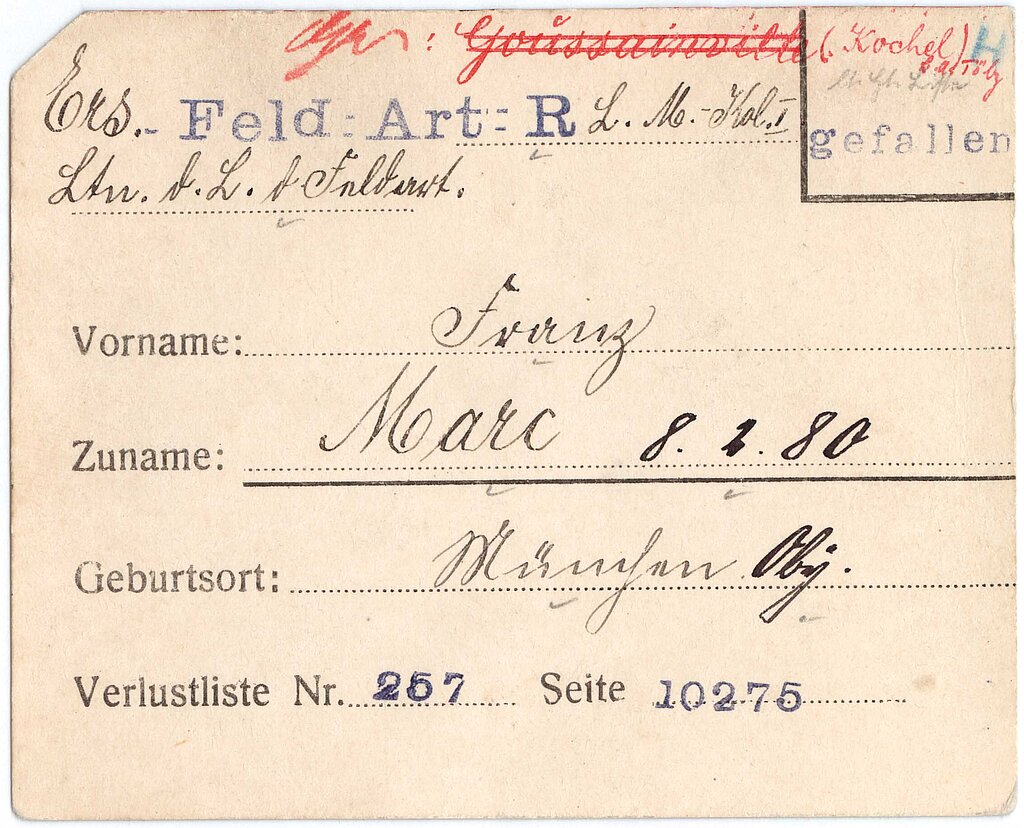 : Goussainville (Kochel) H
B.A. Tölz
Ers.- Feld=Art=R L. M.-Kol. I
gefallen
Ltn. d. L. d Feldart.
Vorname: Franz
Zuname: Marc 8. 2. 80
Geburtsort: München Oby.
Verlustliste Nr. 257 Seite 10275